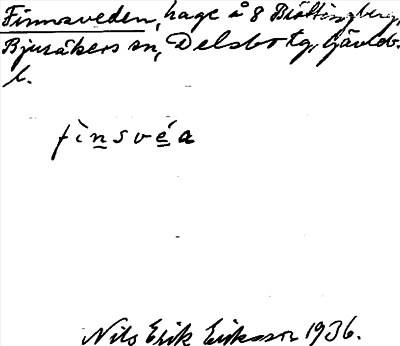 Finnsveden, hage å 8 Brättingberg,
Bjuråkers sn, Delsbo tg, Gävleb.
l.
fìnsvéa
Nils Erik Eriksson 1936.